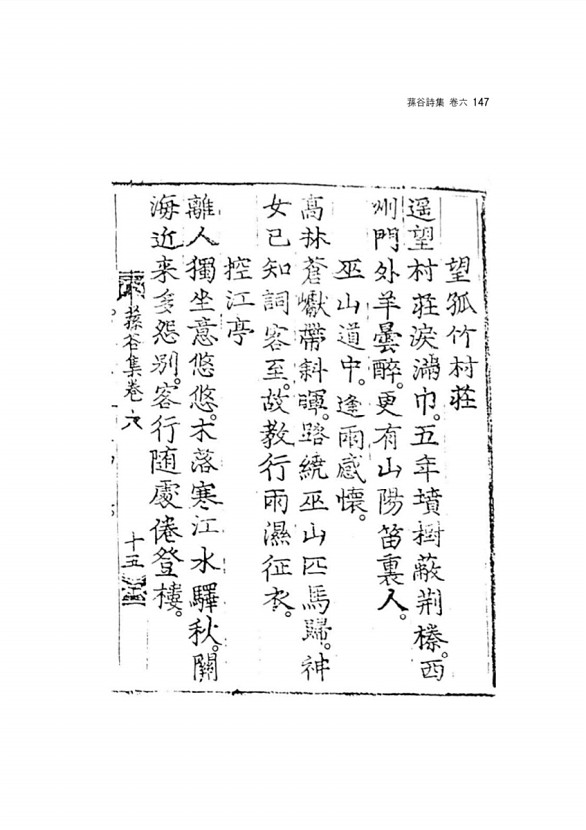 蓀谷詩集 卷六 147
望孤竹村莊
遥望村莊淚滿巾。五年墳樹蔽荆榛。西
州門外羊曇醉。更有山陽笛裏人。
巫山道中。逢雨感懷。
高林蒼巘帶斜暉。路繞巫山匹馬歸。神
女已知詞客至。故教行雨濕征衣。
控江亭
離人獨坐意悠悠。木落寒江水驛秋。關
海近来多怨别。客行随處倦登樓。
蓀谷集卷六
十五